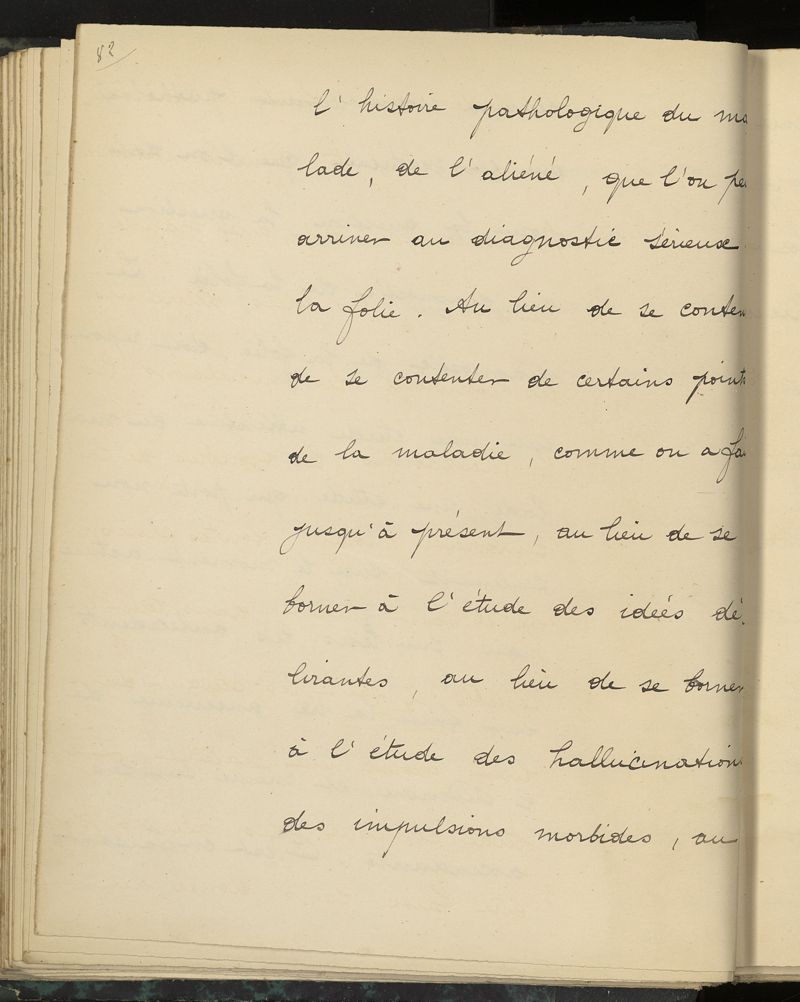 82
l'histoire pathologique du ma
lade, de l'aliéné, que l'on pe
arriver au diagnostic sérieux
la folie. Au lieu de se conten
de se contenter de certains point
de la maladie, comme on a fai
jusqu'à présent, au lieu de se
borner à l'étude des ideés dé.
lirantes, au lieu de se borner
à l'étude des hallucination
des impulsions morbides, au